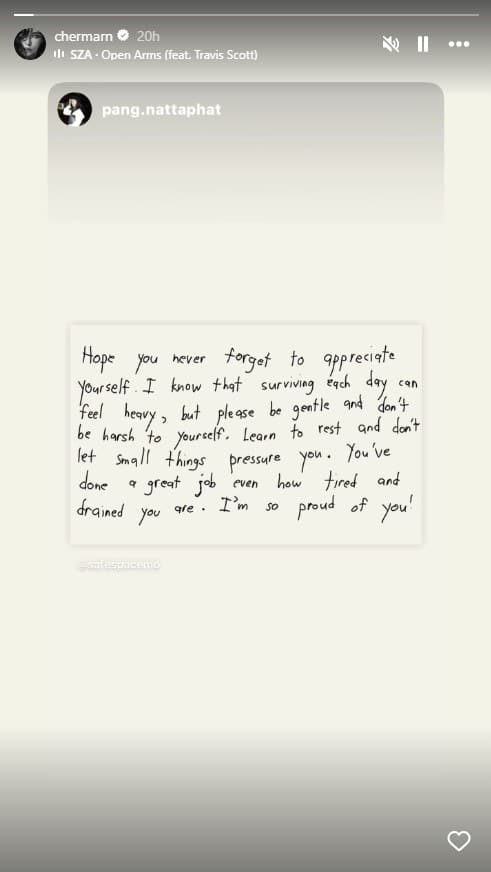 chermarn 20h
SZA · Open Arms (feat. Travis Scott)
pang.nattaphat
Hope you never forget to appreciate
yourself. I know that surviving each day can
feel heavy, but please be gentle and don't
be harsh to yourself. Learn to rest and don't
let small things pressure you. You've
done a great job even how tired and
drained you are. I'm so proud of you!
@safespacemo